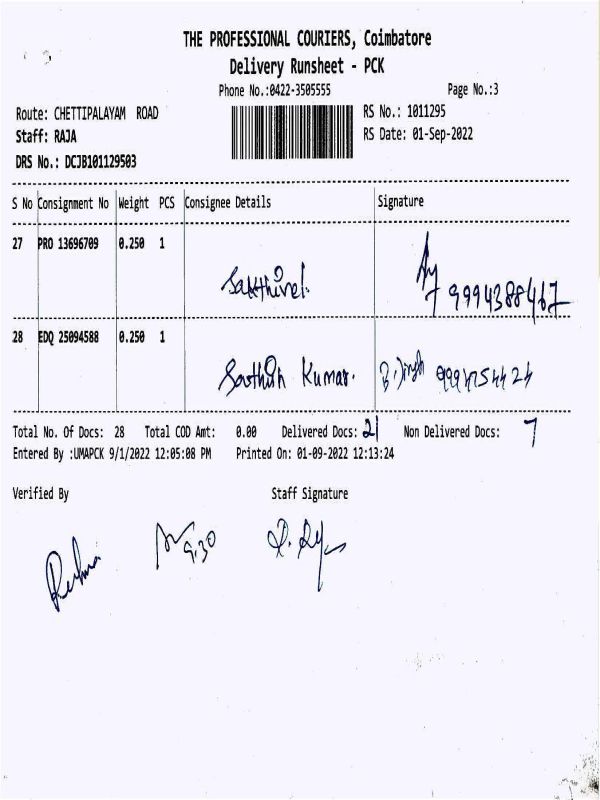 THE PROFESSIONAL COURIERS, Coimbatore
Delivery Runsheet - PCK
Phone No.:0422-3505555 Page No.:3
Route: CHETTIPALAYAM ROAD RS No.: 1011295
Staff: RAJA RS Date: 01-Sep-2022
DRS No.: DCJB101129503
S No Consignment No Weight PCS Consignee Details Signature
27 PRO 13696709 0.250 1
Sakthivel. 9994388467
28 EDQ 25094588 0.250 1
Kumar.
Total No. Of Docs: 28 Total COD Amt: 0.00 Delivered Docs: 21 Non Delivered Docs: 7
Entered By :UMAPCK 9/1/2022 12:05:08 PM Printed On: 01-09-2022 12:13:24
Verified By Staff Signature
9.30